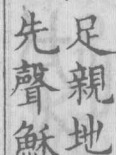 足親地
先聲穌